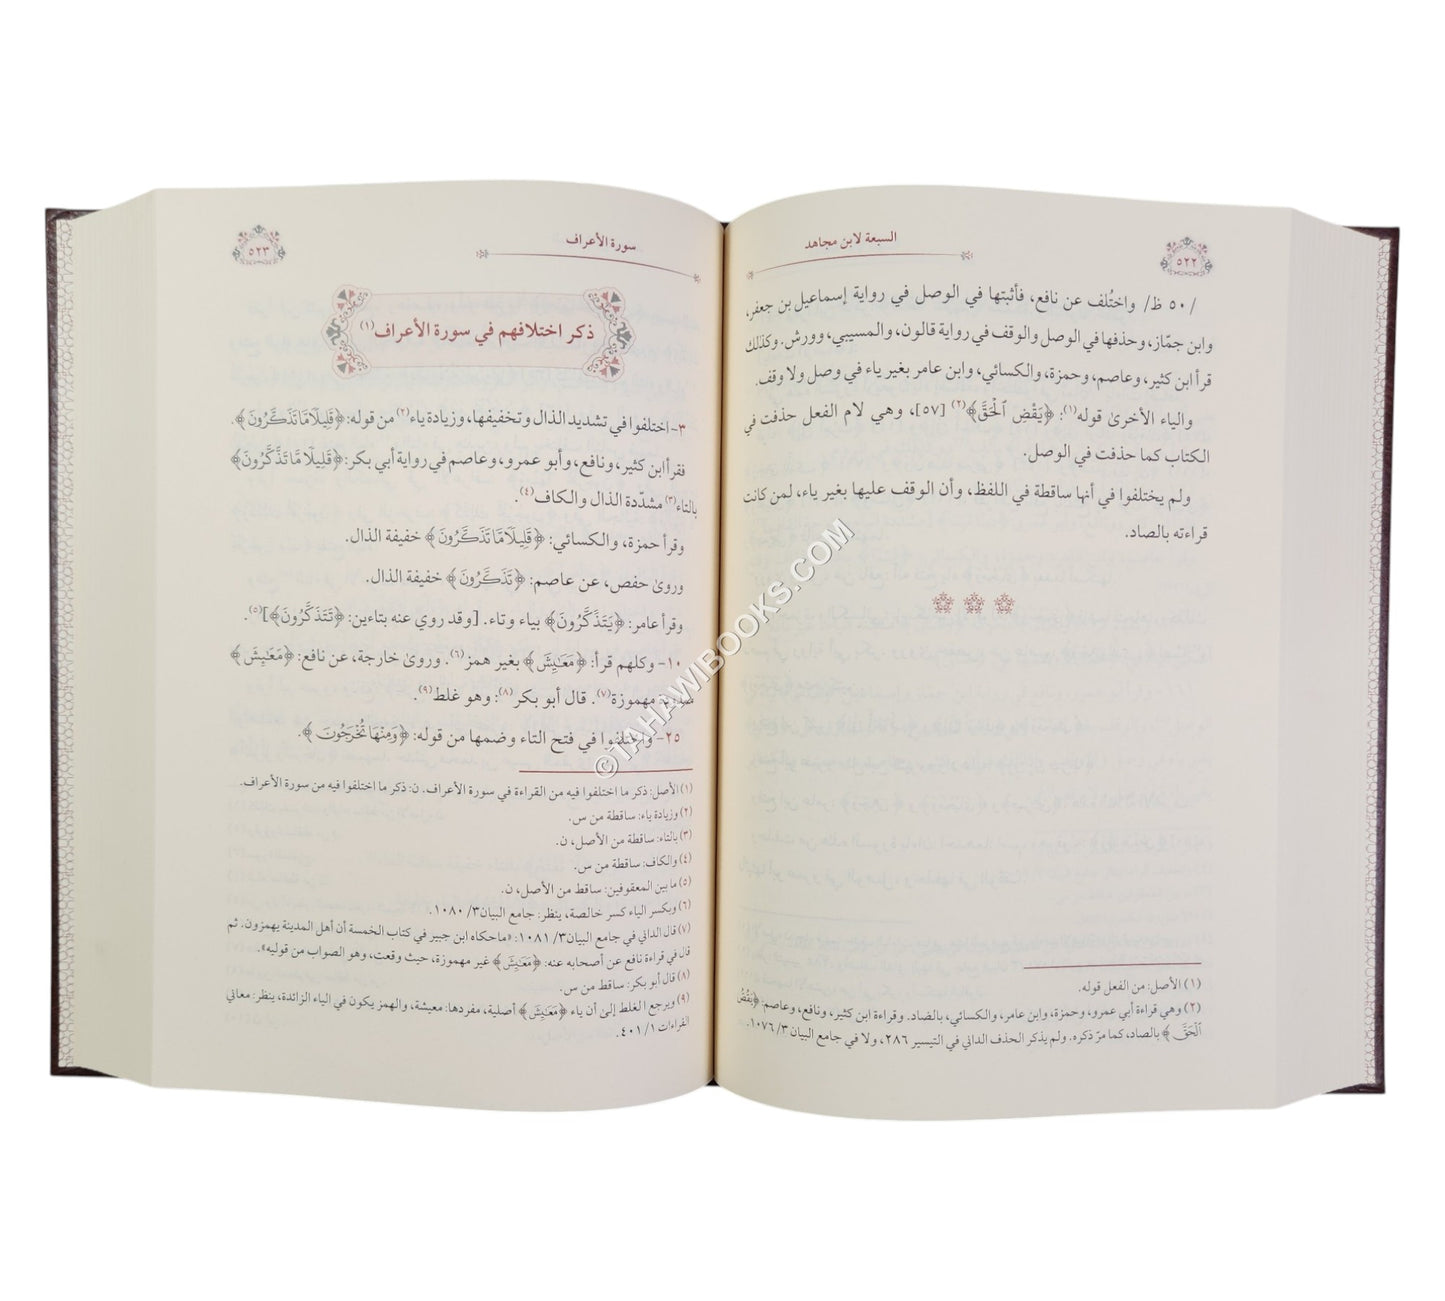 السبعة لابن مجاهد
٥٢٢
/ ٥٠ ظ/ واختُلف عن نافع، فأثبتها في الوصل في رواية إسماعيل بن جعفر،
وابن جمّاز، وحذفها في الوصل والوقف في رواية قالون، والمسيبي، وورش. وكذلك
قرأ ابن كثير، وعاصم، وحمزة، والكسائي، وابن عامر بغير ياء في وصل ولا وقف.
والياء الأخرىٰ قوله(١): ﴿يَقْضِ ٱلْحَقَّ﴾(٢) [٥٧]، وهي لام الفعل حذفت في
الكتاب كما حذفت في الوصل.
ولم يختلفوا في أنها ساقطة في اللفظ، وأن الوقف عليها بغير ياء، لمن كانت
قراءته بالصاد.
(١) الأصل: من الفعل قوله.
(٢) وهي قراءة أبي عمرو، وحمزة، وابن عامر، والكسائي، بالضاد. وقراءة ابن كثير، ونافع، وعاصم: ﴿يَقُصُّ
ٱلْحَقَّ﴾ بالصاد، كما مرّ ذكره. ولم يذكر الحذف الداني في التيسير ٢٨٦، ولا في جامع البيان ٣/ ١٠٧٦.
سورة الأعراف
٥٢٣
ذكر اختلافهم في سورة الأعراف(١)
٣- اختلفوا في تشديد الذال وتخفيفها، وزيادة ياء(٢) من قوله: ﴿قَلِيلًا مَّا تَذَكَّرُونَ﴾.
فقرأ ابن كثير، ونافع، وأبو عمرو، وعاصم في رواية أبي بكر: ﴿قَلِيلًا مَّا تَذَّكَّرُونَ﴾
بالتاء(٣) مشدّدة الذال والكاف(٤).
وقرأ حمزة، والكسائي: ﴿قَلِيلًا مَّا تَذَكَّرُونَ﴾ خفيفة الذال.
وروىٰ حفص، عن عاصم: ﴿تَذَكَّرُونَ﴾ خفيفة الذال.
وقرأ عامر: ﴿يَتَذَكَّرُونَ﴾ بياء وتاء. [وقد روي عنه بتاءين: ﴿تَتَذَكَّرُونَ﴾](٥).
١٠- وكلهم قرأ: ﴿مَعَٰيِشَ﴾ بغير همز(٦). وروىٰ خارجة، عن نافع: ﴿مَعَٰٓئِشَ﴾
مهموزة(٧). قال أبو بكر(٨): وهو غلط(٩).
٢٥- واختلفوا في فتح التاء وضمها من قوله: ﴿وَمِنْهَا تُخْرَجُونَ﴾.
(١) الأصل: ذكر ما اختلفوا فيه من القراءة في سورة الأعراف. ن: ذكر ما اختلفوا فيه من سورة الأعراف.
(٢) وزيادة ياء: ساقطة من س.
(٣) بالتاء: ساقطة من الأصل، ن.
(٤) والكاف: ساقطة من س.
(٥) ما بين المعقوفين: ساقط من الأصل، ن.
(٦) وبكسر الياء كسر خالصة، ينظر: جامع البيان ٣/ ١٠٨٠.
(٧) قال الداني في جامع البيان ٣/ ١٠٨١: «ما حكاه ابن جبير في كتاب الخمسة أن أهل المدينة يهمزون. ثم
قال في قراءة نافع عن أصحابه عنه: ﴿مَعَٰيِشَ﴾ غير مهموزة، حيث وقعت، وهو الصواب من قوليه».
(٨) قال أبو بكر: ساقط من س.
(٩) ويرجع الغلط إلىٰ أن ياء ﴿مَعَٰيِشَ﴾ أصلية، مفردها: معيشة، والهمز يكون في الياء الزائدة، ينظر: معاني
القراءات ١/ ٤٠١.
©TAHAWIBOOKS.COM